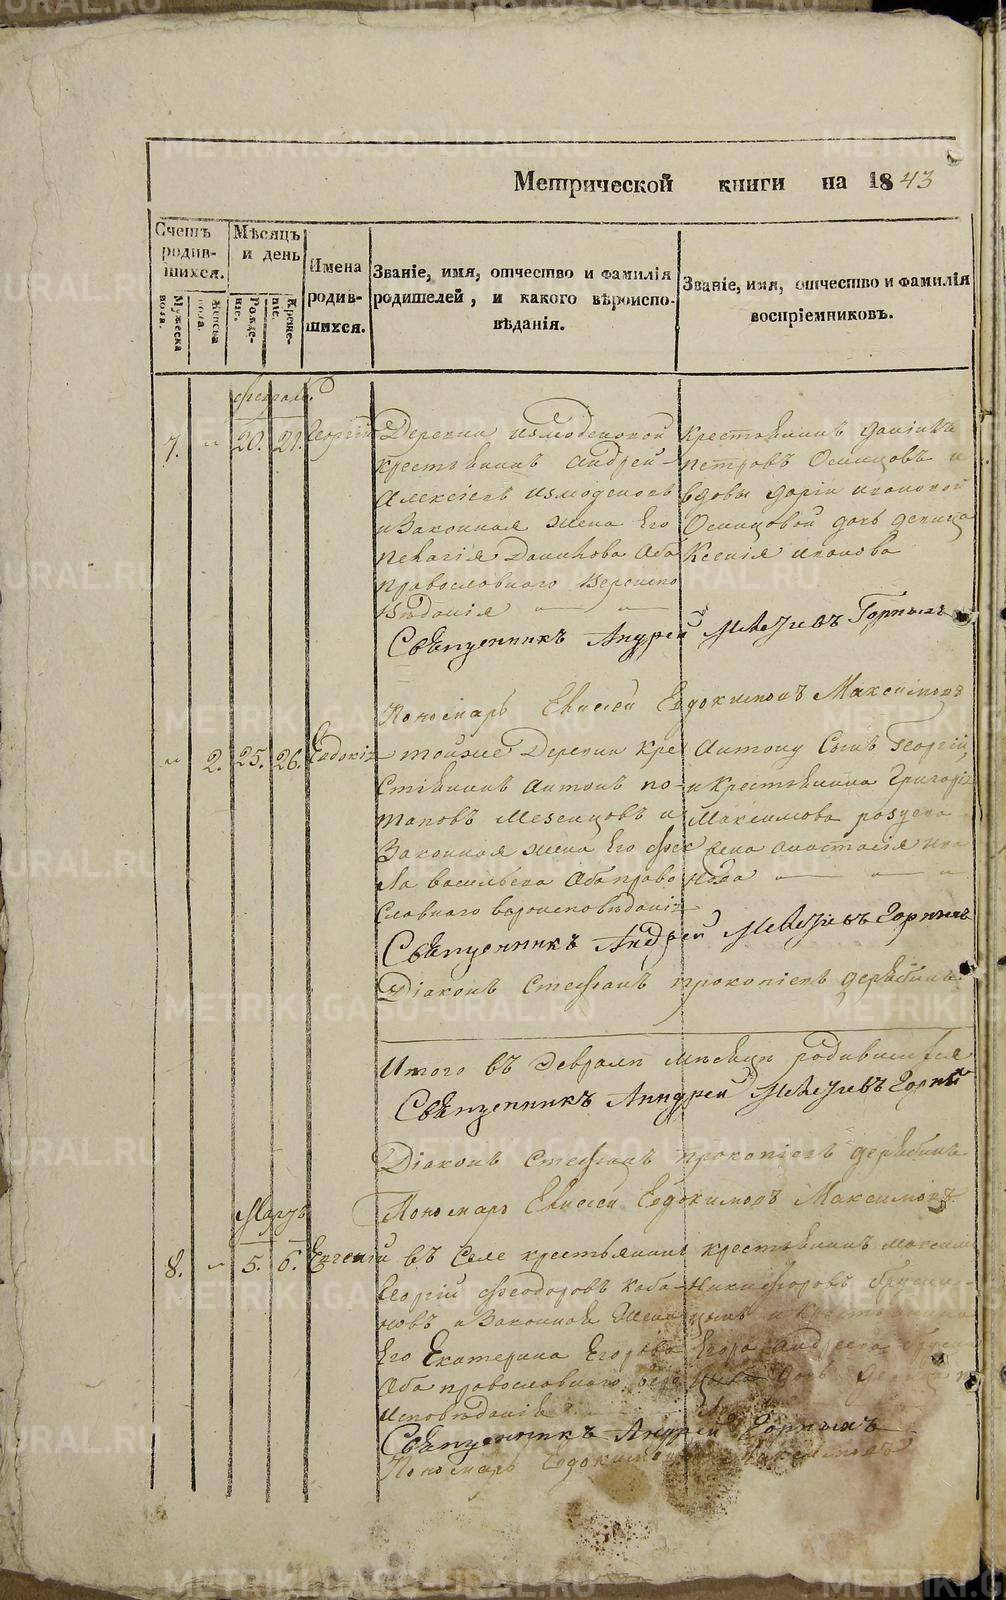 Метрической книги на 1843
Счетъ родив-шихся.
Мужеска пола.
Женска пола.
Мѣсяцъ и день
Рожде-ніе.
Креще-ніе.
Имена родив-шихся.
Званіе, имя, отчество и фамилія родителей, и какого вѣроиспо-вѣданія.
Званіе, имя, отчество и фамилія воспріемниковъ.
Февраль
7. 20. 21. Георгій
Деревни Измоденовой
крестьянинъ Андрей
Алексіевъ Измоденовъ
и законная жена его
Пелагія Данилова оба
православнаго вероиспо
вѣданія
Крестьянинъ Даніилъ
Петровъ Осинцовъ и
вдовы Даріи Ивановой
Осинцовой дочь девица
Ксенія Иванова
Священникъ Андрей Горныхъ
Пономарь Евдокимовъ Максимовъ
2. 25. 26. Евдокія
тойже Деревни кре
стьянинъ Антонъ По-
таповъ Мезенцовъ и
законная жена его Фек
ла Васильева оба право
славнаго вероисповѣданія
Антону сынъ Георгій,
и крестьянина Григорія
Максимова
жена Анастасія
Священникъ Андрей Горныхъ
Діаконъ Стефанъ Прокопіевъ Дерябинъ
Итого въ Февралѣ мѣсяцѣ родившихся
Священникъ Андрей Горныхъ
Діаконъ Стефанъ Прокопіевъ Дерябинъ
Пономарь Евдокимовъ Максимовъ
Мартъ
8. 5. 6. Евгений
въ селе крестьянинъ
Георгій Феодоровъ Каба-
новъ и законная жена
его Екатерина Егорова
оба православнаго веро
исповѣданія
крестьянинъ Максимъ
Никифоровъ
Егора Андреева
дочь девица
Священникъ Андрей Горныхъ
Пономарь Евдокимовъ Максимовъ
METRIKI.GASO-URAL.RU